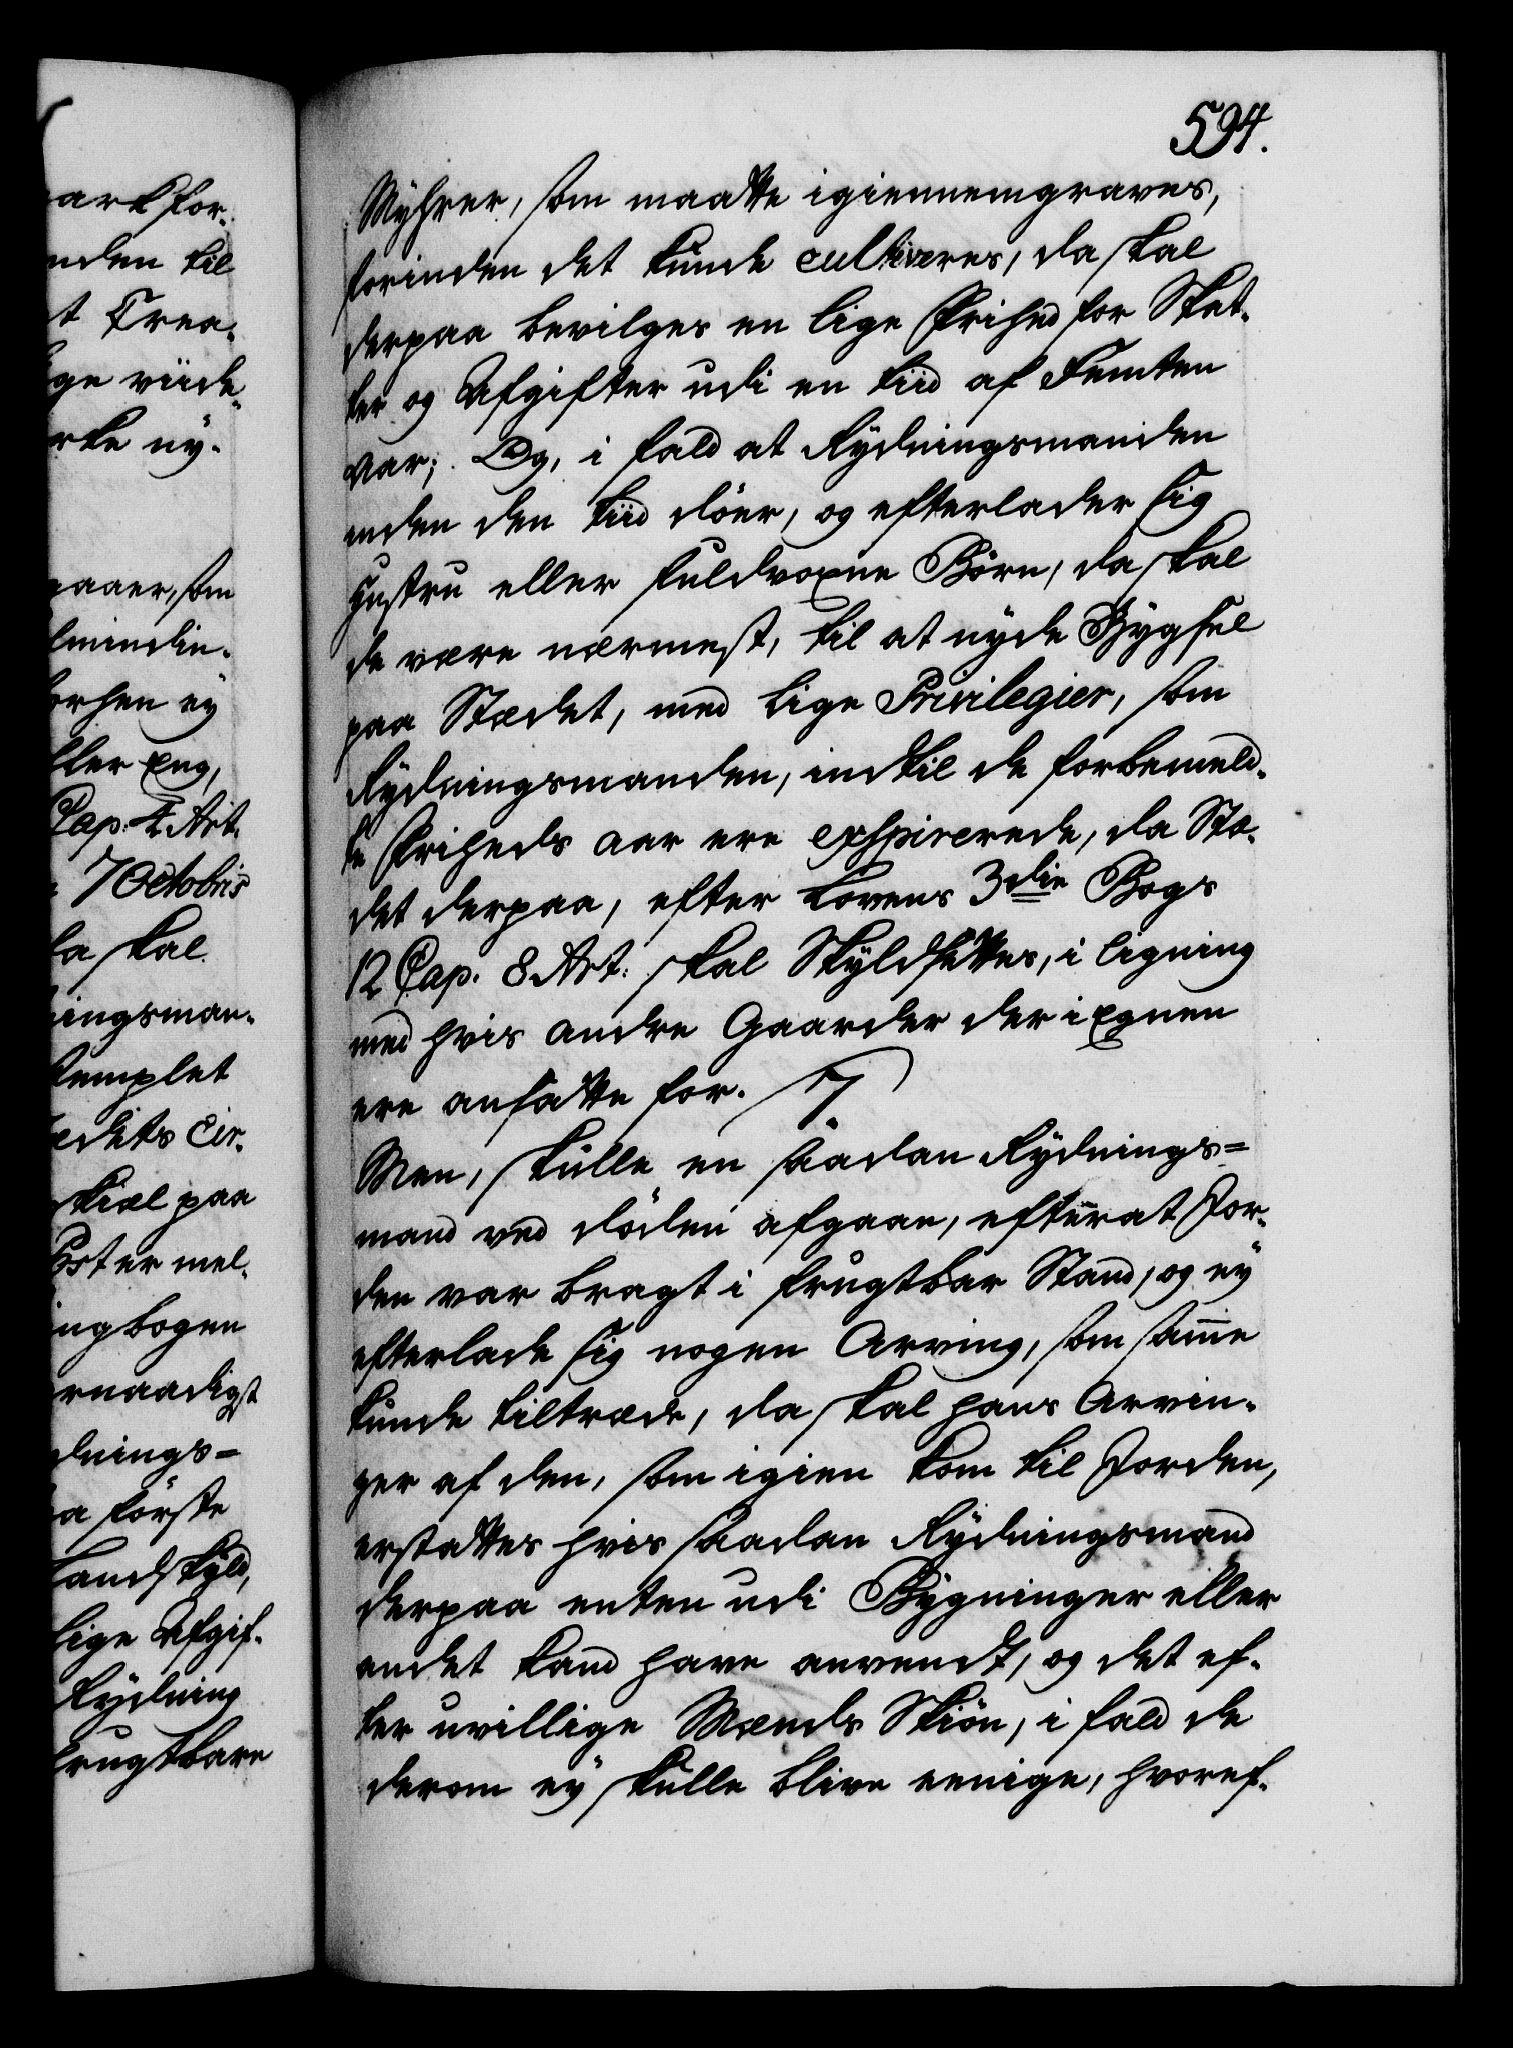 594.
Myhrer, som maatte igiennemgraves,
forinden det kunde cultiveres, da skal
derpaa bevilges en lige Frihed for Skat-
ter og Afgifter udi en tiid af Femten
Aar; Og, i fald at Rydningsmanden
inden den tiid döer, og efterlader sig
Hustru eller fuldvoxne Börn, da skal
de være nærmest, til at nyde Bygsel
paa Stædet, med lige Privilegier, som
Rydningsmanden, indtil de forbemeld-
te Friheds Aar ere exspirerede, da Stæ-
det derpaa, efter Lovens 3die Bogs
12 Cap. 8 Art: skal Skyldsettes, i ligning
med hvis andre Gaarder der i Egnen
ere ansatte for. 7
Men, skulle en saadan Rydnings=
mand ved döden afgaae, efterat Jor-
den var bragt i frugtbar Stand, og ey
efterlade sig nogen Arving, som samme
kunde tiltræde, da skal hans Arvin-
ger af den, som igien kom til Jorden,
erstattes hvis saadan Rydningsmand
derpaa enten udi Bygninger eller
andet kand have anvendt, og det ef-
ter uvillige Mænds Skiön, i fald de
derom ey skulle blive eenige, hvoref-
ark for-
nden til
t Crea-
ge viide
rke ny-
aaer, som
lmindin-
orhen ey
ller Eng,
Cap: 4 Art.
7 Octobris
da skal
ningsman-
stemplet
Cir-
skiæl paa
Post er mel-
ing bogen
rnaadigst
dnings=
a förste
Landskyld,
lige Afgif-
Rydning
frugtbare